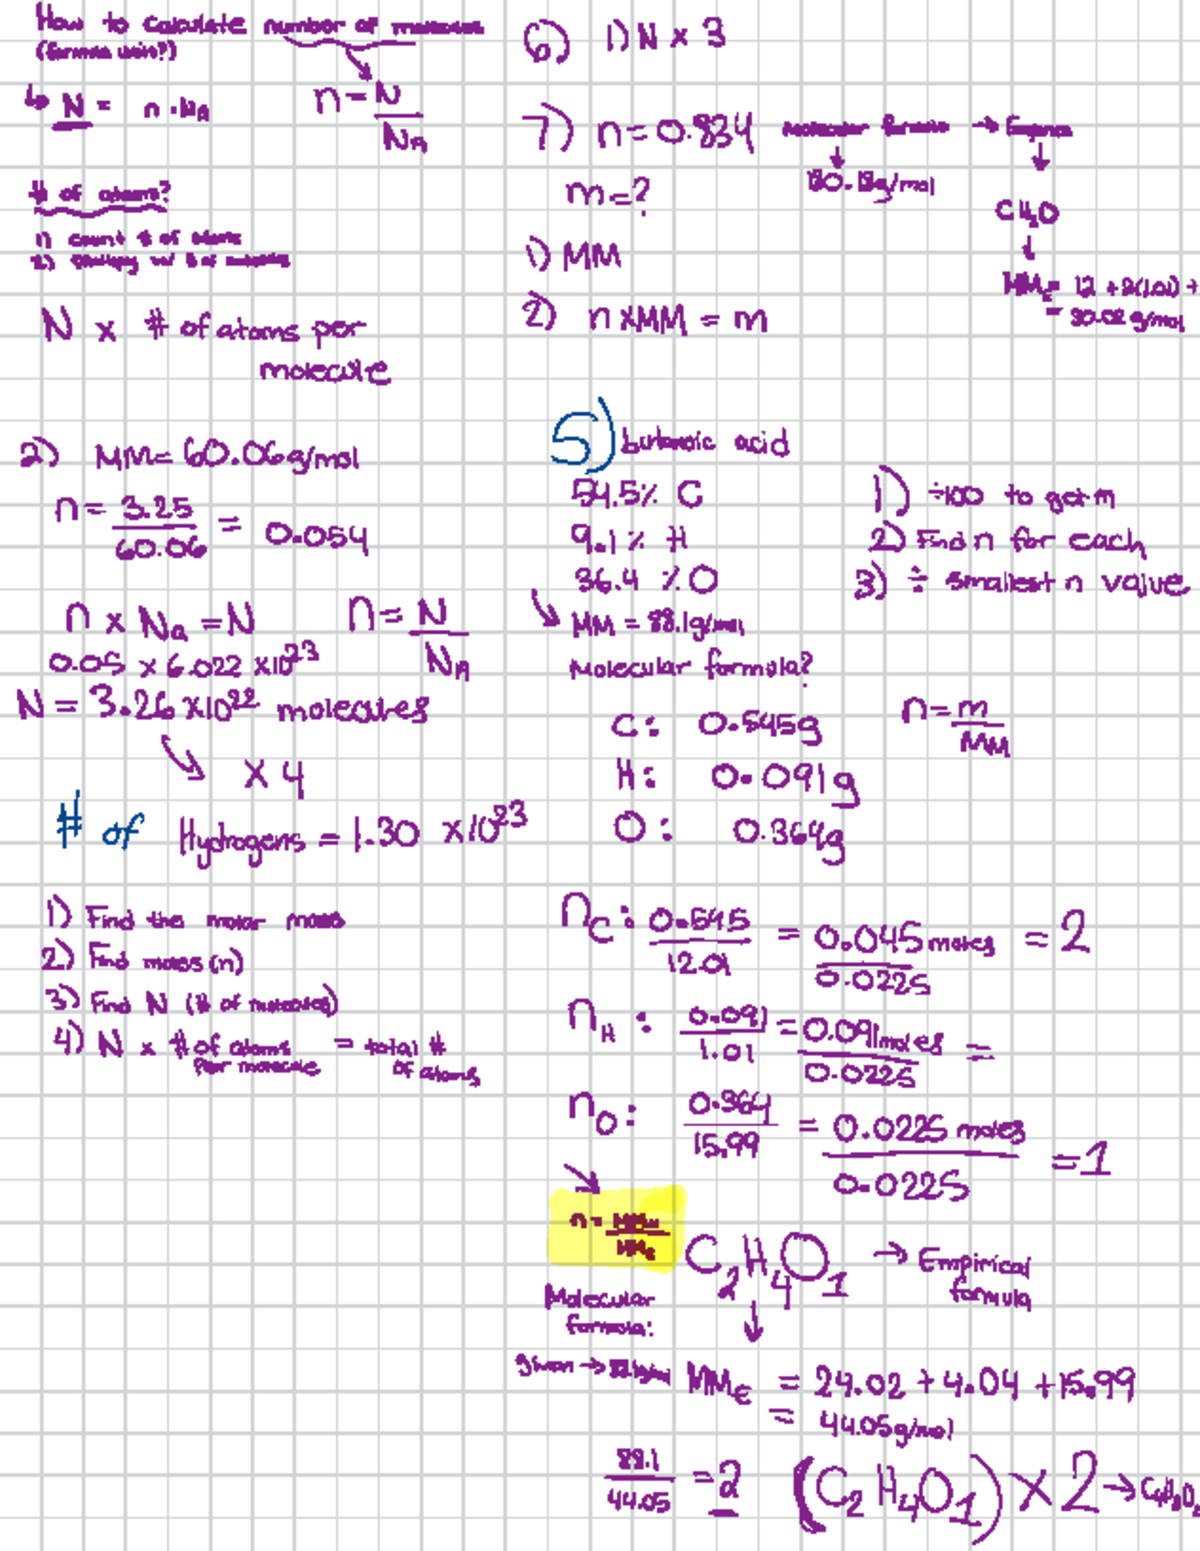 How to calculate number of molecules
(formula units?)
↳ N = n · NA
n = N
NA
# of atoms?
1) count # of atoms
2) multiply w/ # of molecules
N x # of atoms per
molecule
2) MM= 60.06g/mol
n = 3.25 = 0.054
60.06
n x Na = N
0.05 x 6.022 x10²³
n = N
NA
N = 3.26 x10²² molecules
x 4
# of Hydrogens = 1.30 x10²³
1) Find the molar mass
2) Find moles (n)
3) Find N (# of molecules)
4) N x # of atoms = total #
per molecule of atoms
6) 1) N x 3
7) n = 0.834
m=?
1) MM
2) n x MM = m
Molecular formula → Empirical
↓ ↓
g/mol
CH₂O
↓
MME= 12 + 2(1.01) +
= 30.02 g/mol
5) butanoic acid
54.5% C
9.1% H
36.4 % O
MM = 88.1g/mol
Molecular formula?
1) ÷100 to get m
2) Find n for each
3) ÷ smallest n value
C: 0.545g
H: 0.091g
O: 0.364g
n = m
MM
nC: 0.545 = 0.045 moles = 2
12.01 0.0225
nH: 0.091 = 0.091moles =
1.01 0.0225
nO: 0.364 = 0.0225 moles = 1
15.99 0.0225
n = MMM
MME
C₂H₄O₁ → Empirical
formula
Molecular
formula:
↓
given → 88.1g/mol MME = 24.02 + 4.04 + 15.99
= 44.05g/mol
88.1 = 2
44.05
(C₂H₄O₁) x 2 → C₄H₈O₂